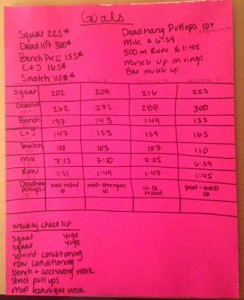 Goals
Squat 225#
Deadlift 300#
Bench Press 155#
C+J 165#
Snatch 110#
Deadhang Pullups 10+
Mile ≤ 6:59
500m Row ≤ 1:45
Muscle up on rings
Bar muscle up
Squat 202 209 216 225
Deadlift 262 275 288 300
Bench 137 143 149 155
C+J 147 153 159 165
Snatch 103 107 110
Mile 7:15 7:10 7:05 6:59
Row 1:51 1:49 1:47 1:45
Deadhang Pullups 10 10 11-12 10
Weekly checklist
Squat
Squat
Sprint conditioning
row conditioning
bench + accessory work
strict pull ups
MUP technique work